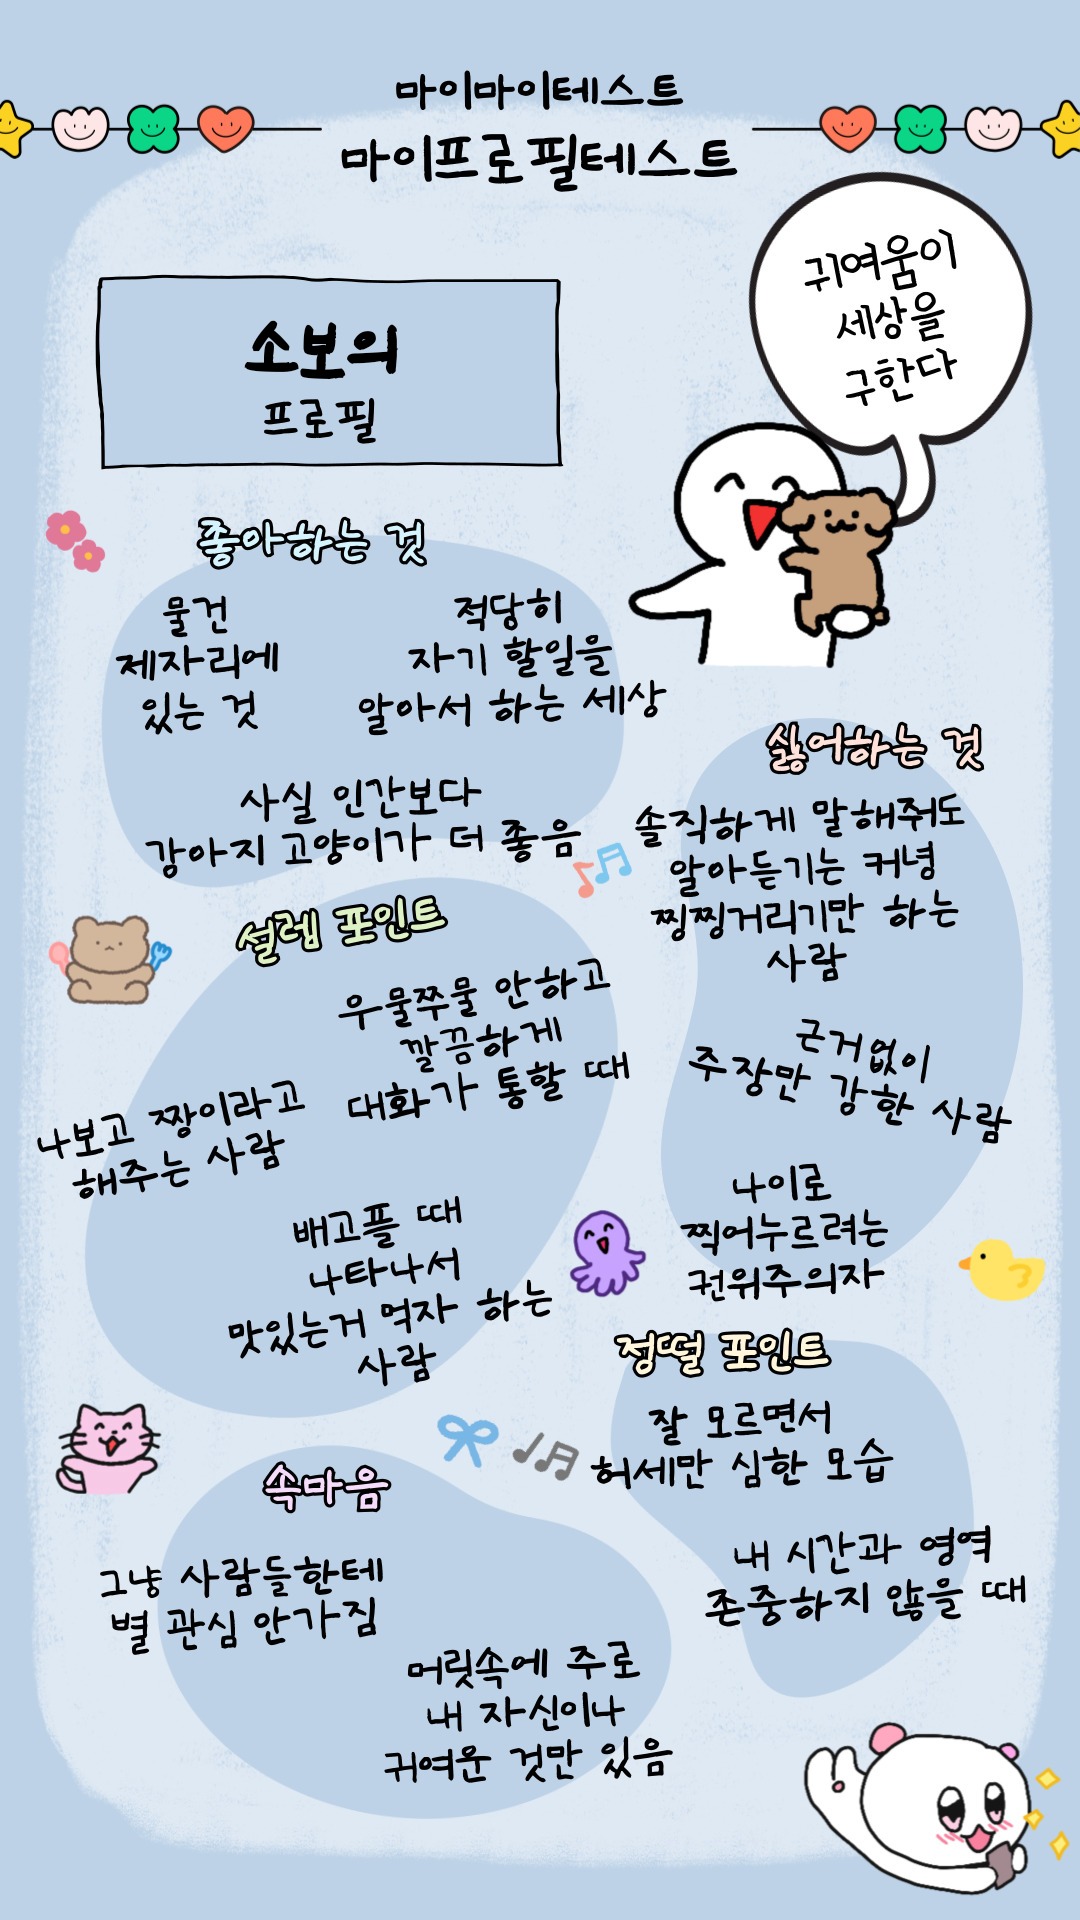 마이마이테스트
마이프로필테스트
귀여움이
세상을
구한다
소보의
프로필
좋아하는 것
물건
제자리에
있는 것
적당히
자기 할일을
알아서 하는 세상
사실 인간보다
강아지 고양이가 더 좋음
싫어하는 것
솔직하게 말해줘도
알아듣기는 커녕
찡찡거리기만 하는
사람
근거없이
주장만 강한 사람
나이로
찍어누르려는
권위주의자
설렘 포인트
우물쭈물 안하고
깔끔하게
대화가 통할 때
나보고 짱이라고
해주는 사람
배고플 때
나타나서
맛있는거 먹자 하는
사람
정떨 포인트
잘 모르면서
허세만 심한 모습
내 시간과 영역
존중하지 않을 때
속마음
그냥 사람들한테
별 관심 안가짐
머릿속에 주로
내 자신이나
귀여운 것만 있음